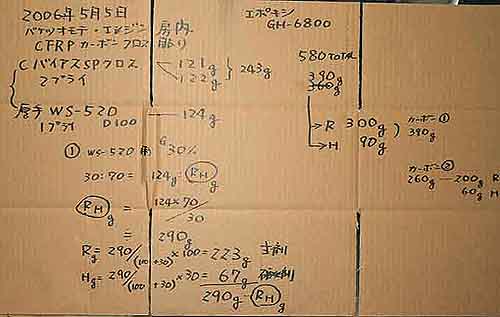 2006年5月5日
バケツオモテ・エンジン房内
CFRP カーボンクロス貼り
Cバイアス SPクロス
2プライ
121g
122g } 243g
厚手 WS-520
1プライ D100
124g
① WS-520用 G30%
30:70= 124g:RHg
RHg = 124×70/30
= 290g
Rg=290/(100+30)×100=223g 主剤
Hg=290/(100+30)×30= 67g
290g RHg
エポキシ
GH-6800
580 TOTAL
390g
360g
→R 300g
→H 90g
カーボン①
390g
カーボン②
260g — 200g R
60g H